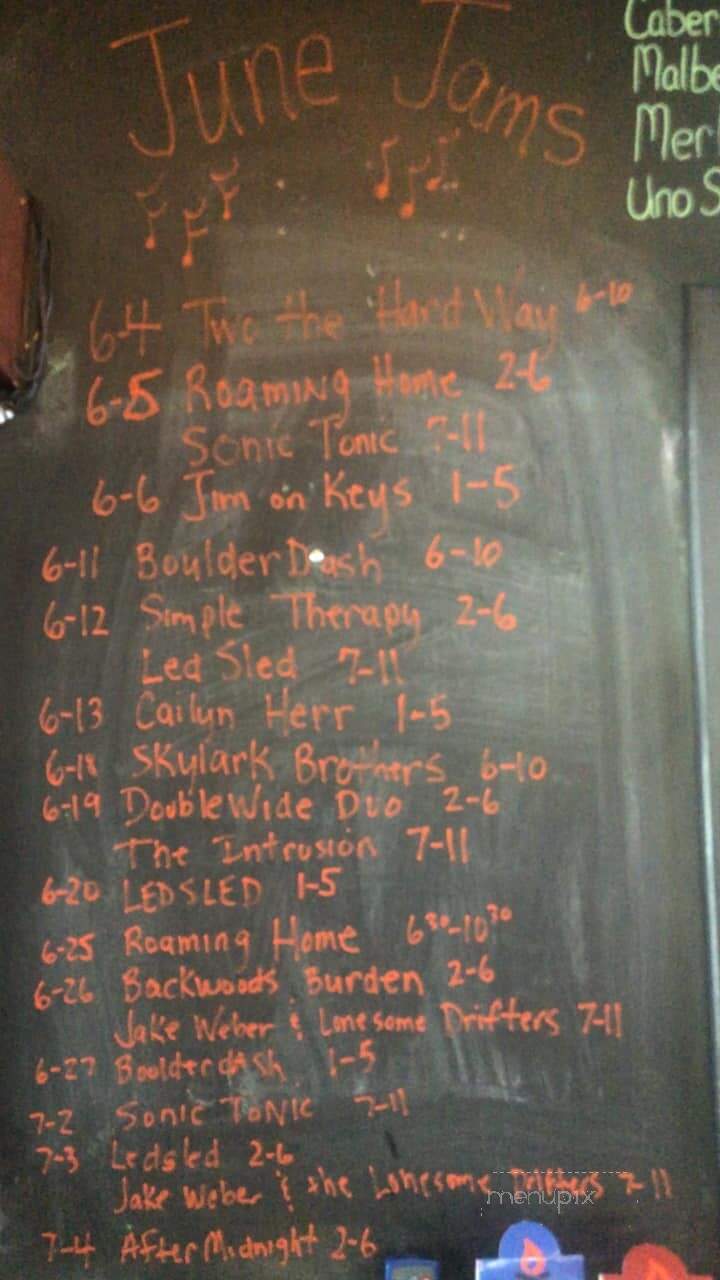 June Jams
Caber
Malbe
Merl
Uno S
6-4 Two the Hard Way 6-10
6-5 Roaming Home 2-6
Sonic Tonic 7-11
6-6 Jim on Keys 1-5
6-11 BoulderDash 6-10
6-12 Simple Therapy 2-6
Led Sled 7-11
6-13 Cailyn Herr 1-5
6-18 Skylark Brothers 6-10
6-19 DoubleWide Duo 2-6
The Intrusion 7-11
6-20 LEDSLED 1-5
6-25 Roaming Home 6³⁰-10³⁰
6-26 Backwoods Burden 2-6
Jake Weber & Lonesome Drifters 7-11
6-27 Boolderdash 1-5
7-2 Sonic Tonic 7-11
7-3 Ledsled 2-6
Jake Weber & the Lonesome Drifters 7-11
menupix
7-4 After Midnight 2-6